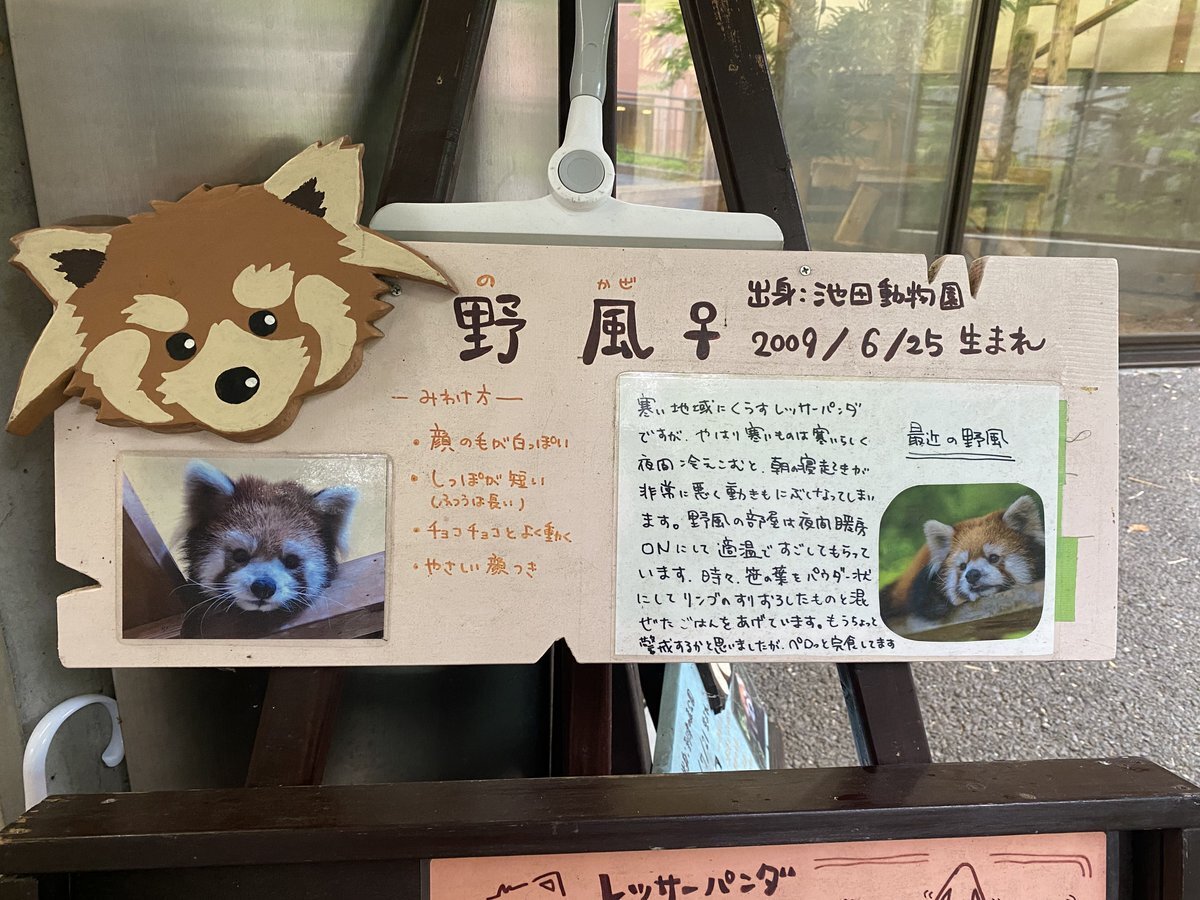 の かぜ
野 風 ♀
出身:池田動物園
2009/6/25 生まれ
ーみわけ方ー
・顔の毛が白っぽい
・しっぽが短い
(ふつうは長い)
・チョコチョコとよく動く
・やさしい顔つき
最近の野風
寒い地域にくらすレッサーパンダ
ですが、やはり寒いものは寒いらしく
夜間冷えこむと、朝の寝起きが
非常に悪く動きもにぶくなってしまい
ます。野風の部屋は夜間暖房
ONにして適温ですごしてもらって
います。時々、笹の葉をパウダー状
にしてリンゴのすりおろしたものと混
ぜたごはんをあげています。もうちょっと
警戒するかと思いましたが、ペロッと完食してます
レッサーパンダ